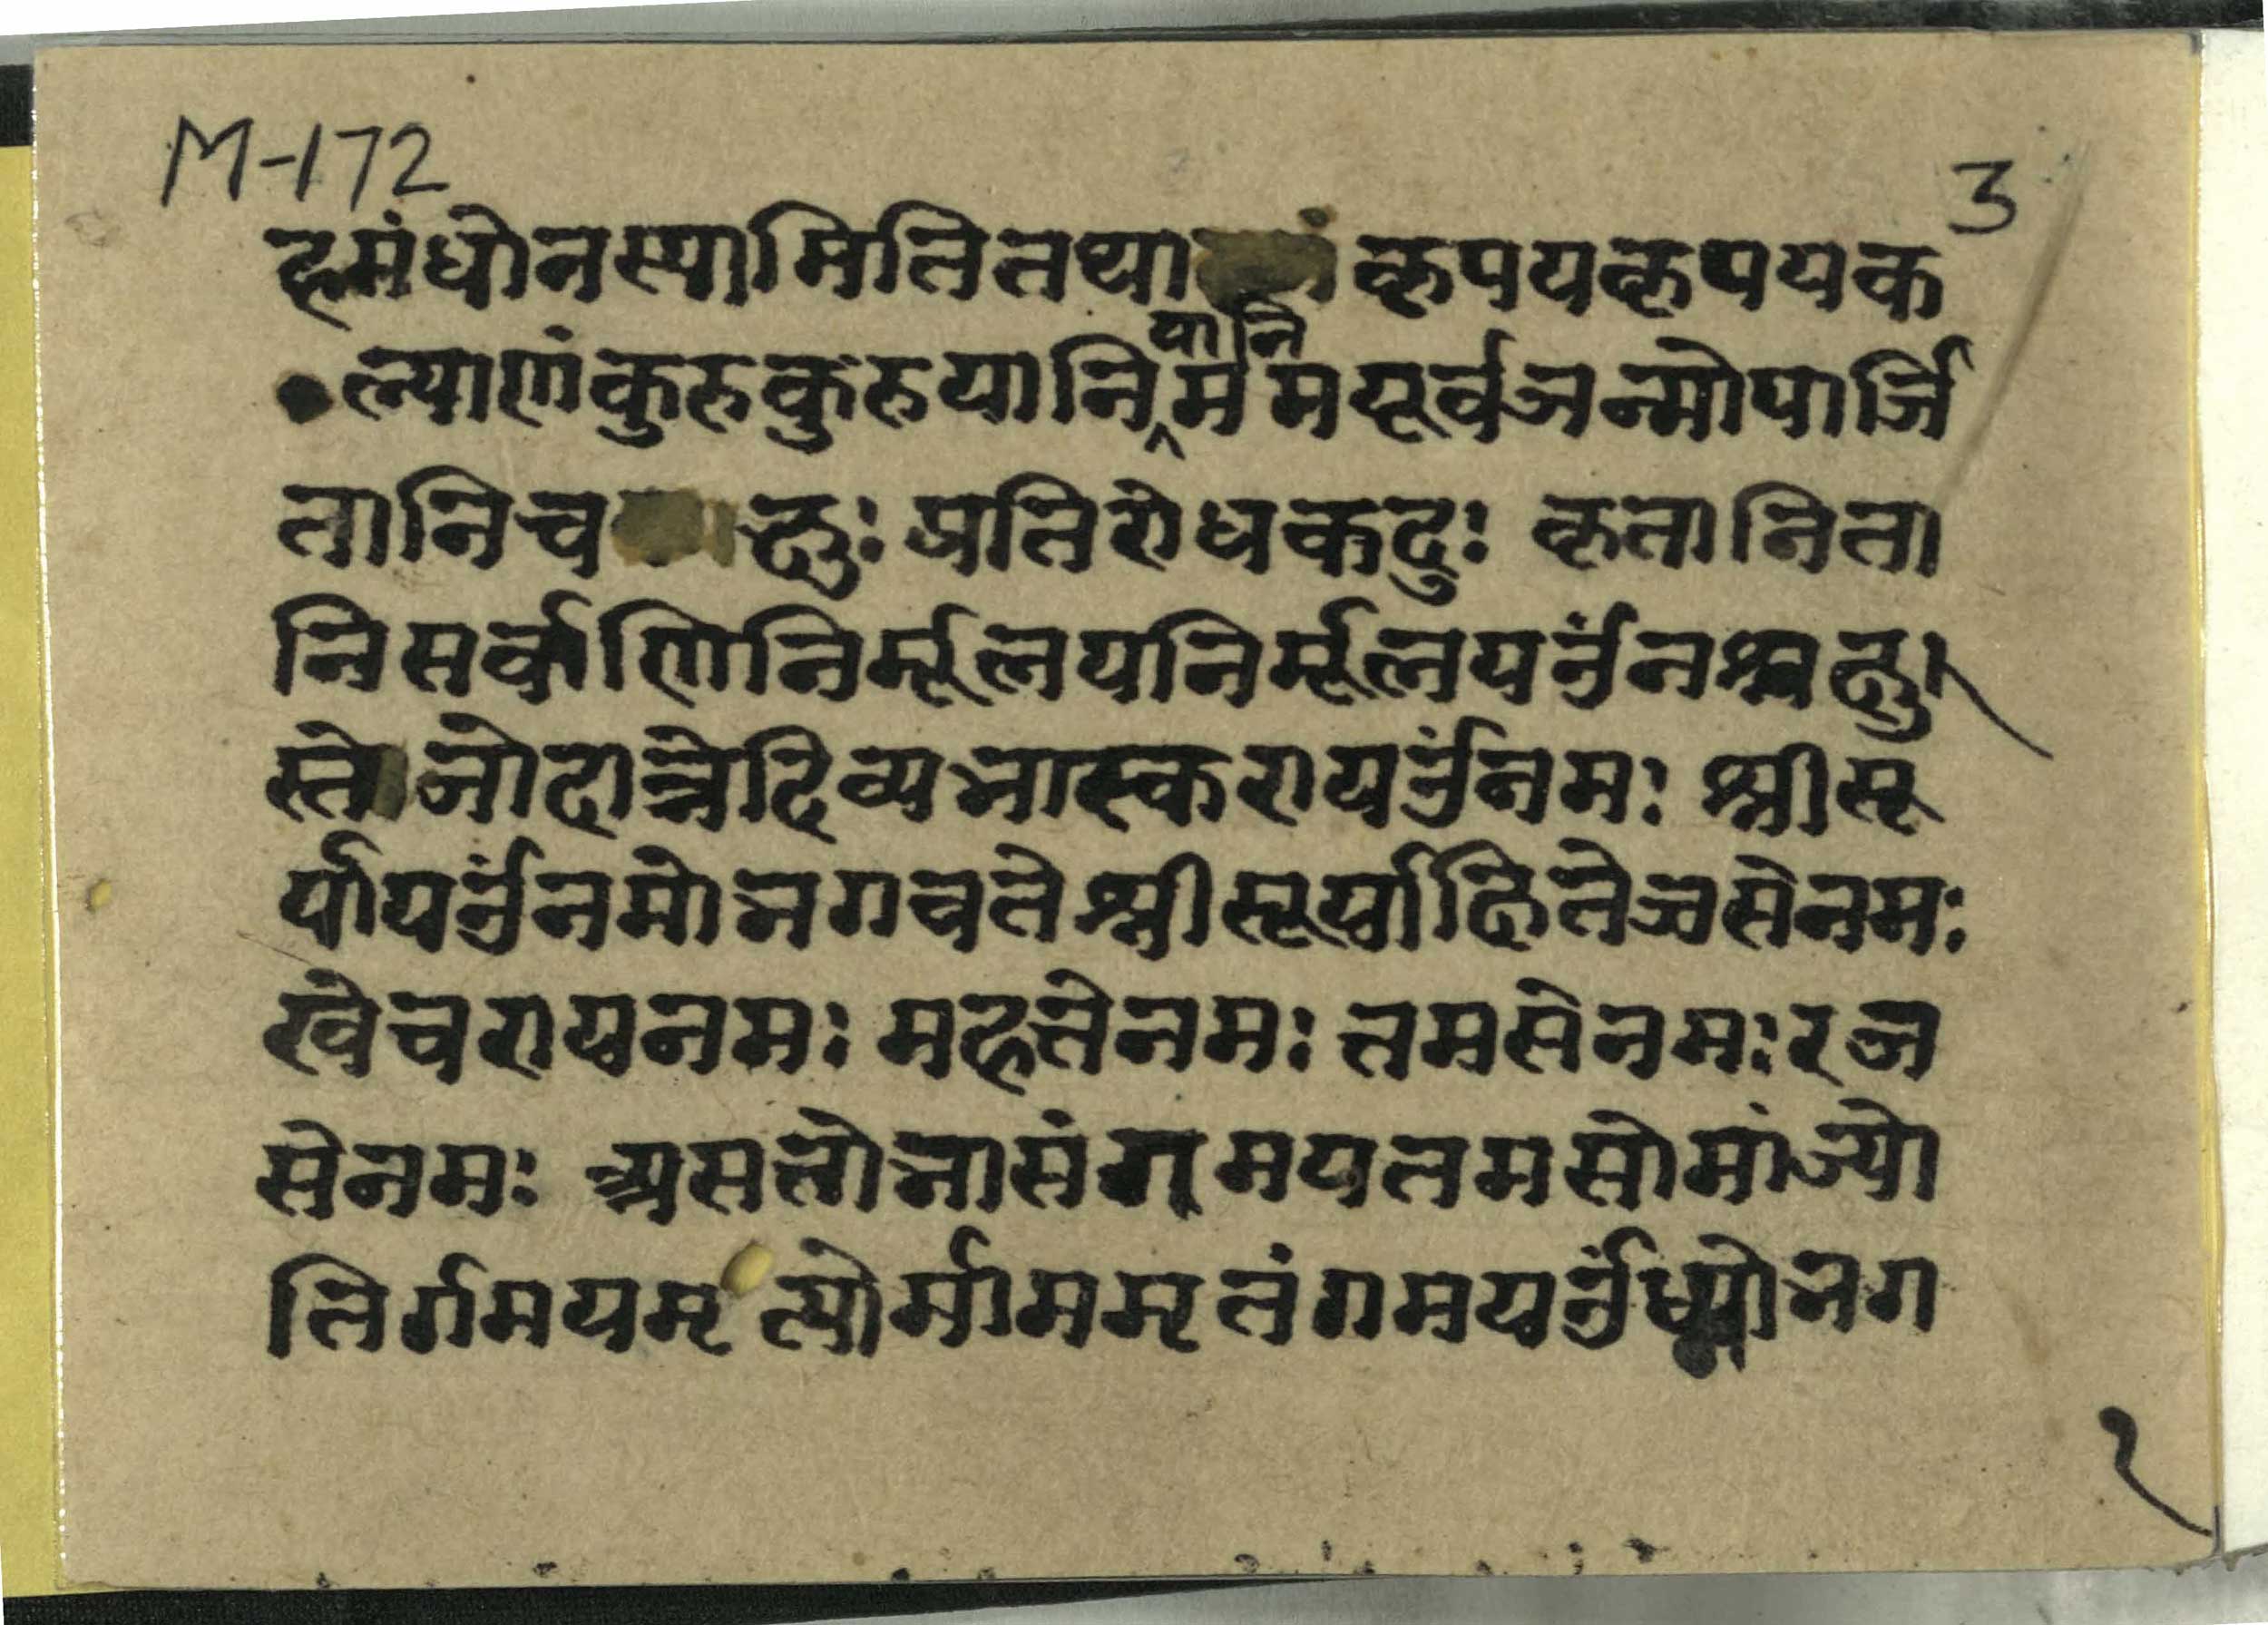 M-172
3
हमंधोनस्यामितितथा कृपयकृपयक
यानि
ल्याणंकुरुकुरुयानिममपूर्वजन्मोपार्जि
तानिच क्षुः प्रतिरोधकदुः कृतानिता
निसर्वाणिनिर्मूलयनिर्मूलयॐनश्चक्षु
स्तेजोदात्रेदिव्यभास्करायॐनमः श्रीसू
र्यायॐनमोभगवतेश्रीसूर्याक्षितेजसेनमः
खेचरायनमः महतेनमः तमसेनमः रज
सेनमः असतोमासंगमयतमसोमांज्यो
तिर्गमयमृत्योर्माममृतंगमयॐ भग
१